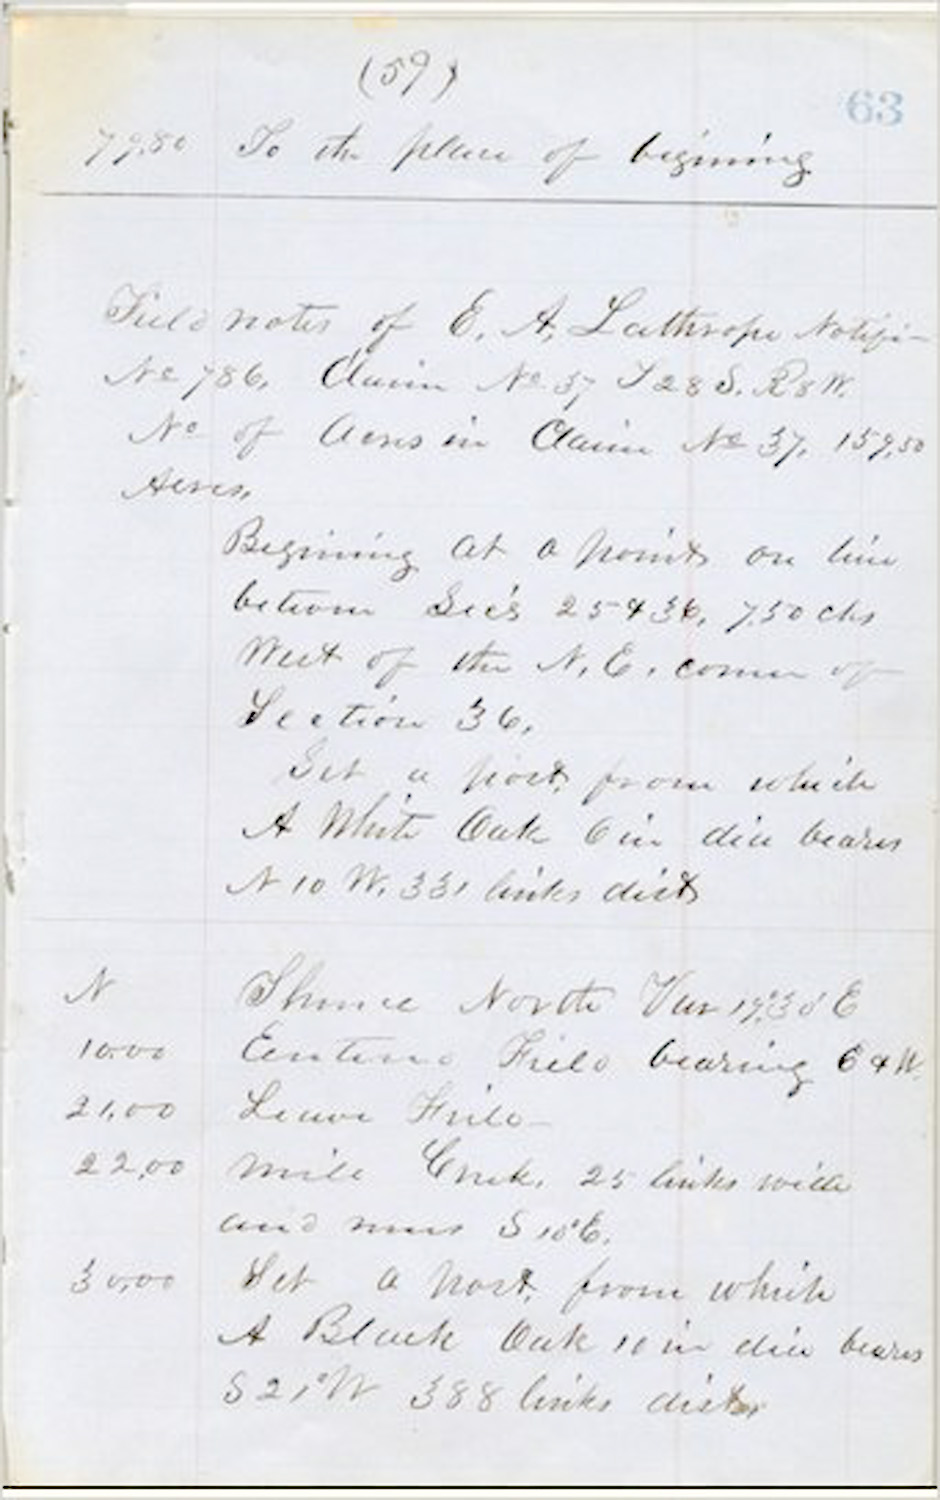 (59)
63
79.80 To the place of begining
Field notes of E. A. Lathrope Notifi-
No 786. Claim No 37 T 28 S. R 8 W.
No of Acres in Claim No 37. 159.50
Acres.
Begining at a point on line
betwen Sec's 25 & 36, 7.50 chs
West of the N. E. corner of
Section 36.
Set a post, from which
A White Oak 6 in dia beares
N 10 W. 331 links dist
N Thence North Var 19°.30' E
10.00 Field bearing E & W.
21.00 Leave Field
22.00 Mill Creek. 25 links wide
and runs S 10° E.
30.00 Set a post, from which
A Black Oak 10 in dia beares
S 21° W 388 links dist.